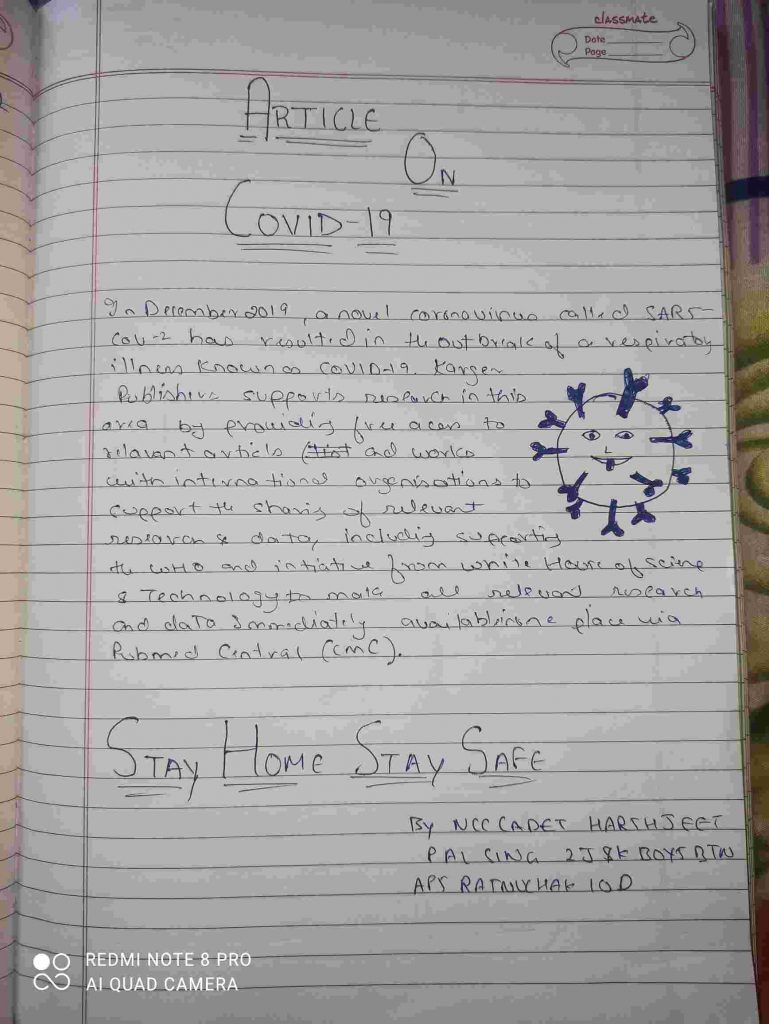 classmate
Date
Page
ARTICLE
ON
COVID-19
In December 2019, a novel coronavirus called SARS-
Cov-2 has resulted in the outbreak of a respiratoy
illness known as COVID-19. Karger
Publishers supports research in this
area by providing free acces to
relavant articls and works
with international organisations to
support the sharing of relevant
research & data, includig supporting
the WHO and intiative from white House of Science
& Technology to make all relevant research
and data Immediately available in one place via
Pubmed Central (CMC).
STAY HOME STAY SAFE
BY NCC CADET HARSHJEET
PAL SING 2J&K BOYS BTN
APS RATNUCHAK 10D
REDMI NOTE 8 PRO
AI QUAD CAMERA